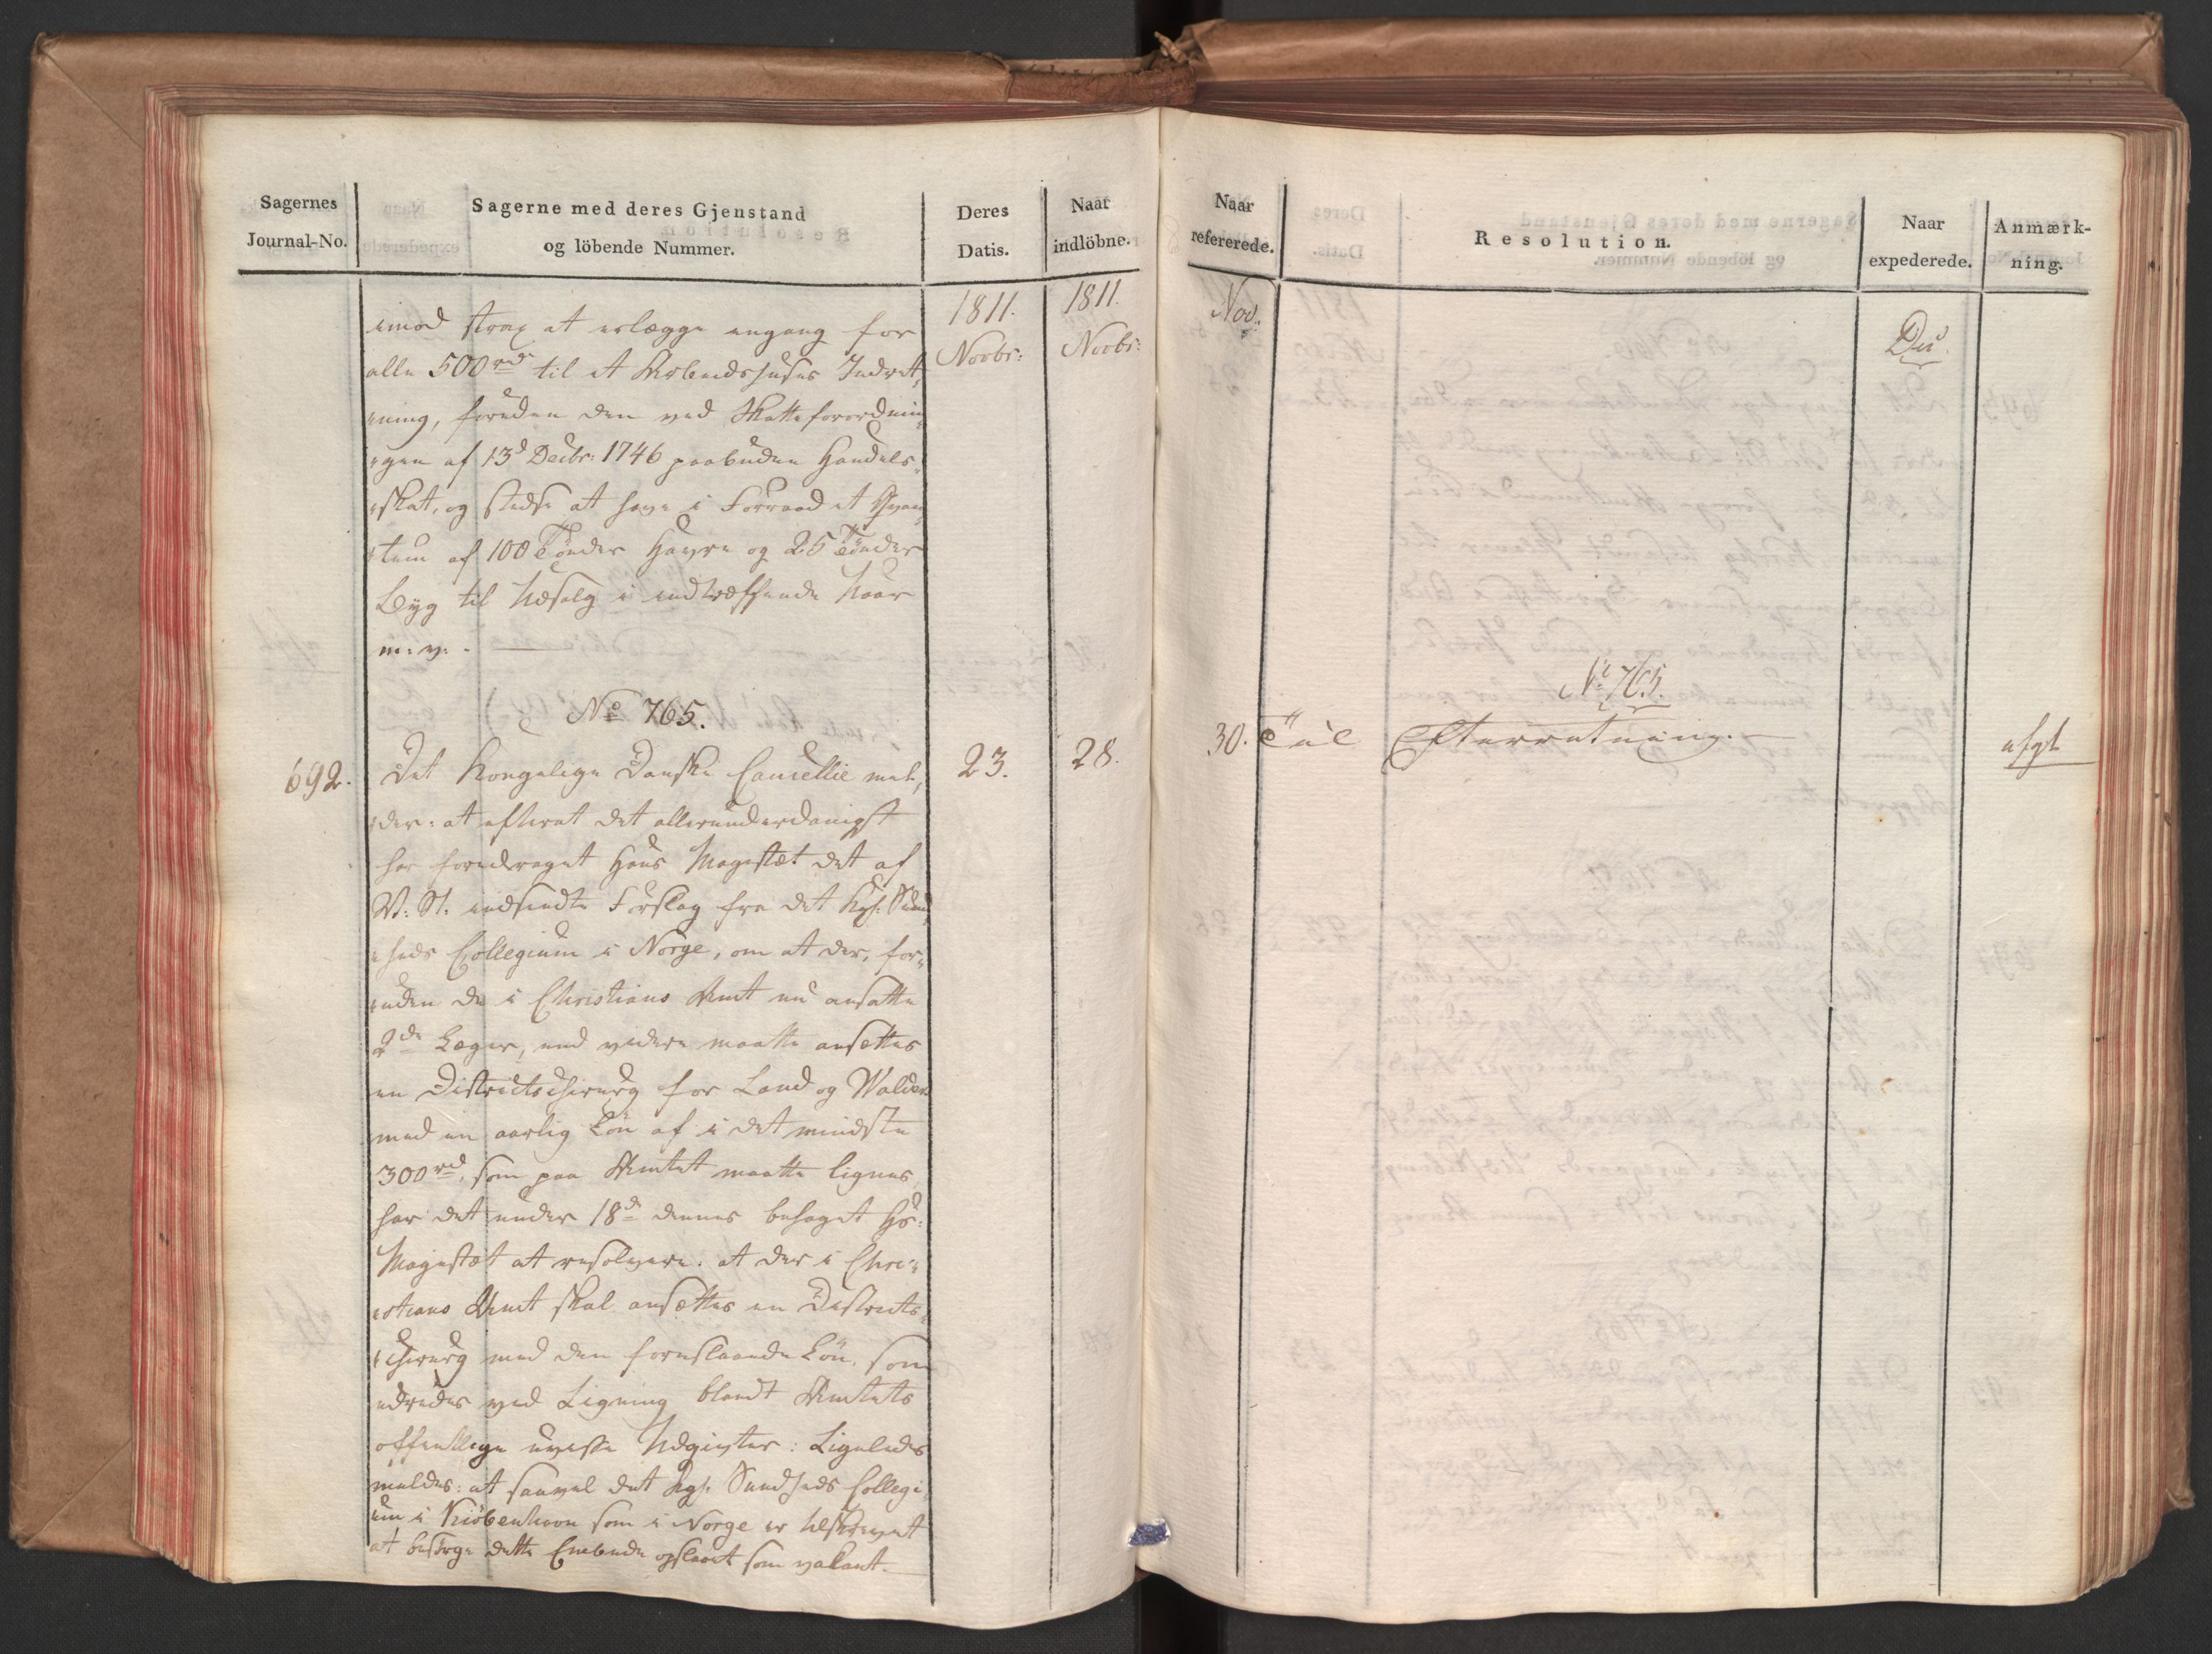 Sagernes
Journal-No.
Sagerne med deres Gjenstand
og löbende Nummer.
Deres
Datis.
Naar
indlöbne.
1811.
Novbr:
1811.
Novbr:
imod strax at erlægge engang for
alle 500 rdr til et Arbeidshuses Indret-
ning, foruden den ved Skatteforordnin-
gen af 13d Decbr: 1746 paabudne Handels-
skat, og stedse at have i Forraad et Qvan-
tum af 100 Tönder Havre og 25 Tönder
Byg til Udsalg i indtræffende Uaar
m: v: -
No 765.
692.
Det Kongelige Danske Cancellie mel-
der: at efterat det allerunderdanigst
har foredraget Hans Majestæt det af
V: St: indsendte Forslag fra det Kgl: Sund-
heds Collegium i Norge, om at der, for-
uden de i Christians Amt nu ansatte
2de Læger, end videre maatte ansættes
en Districtschirurg for Land og Valders
med en aarlig Lön af i det mindste
300 rd, som paa Amtet maatte lignes,
har det under 18de dennes behaget Hs:
Majestæt at resolvere: at der i Chri-
stians Amt skal ansættes en Districts-
chirurg med den foreslaaede Lön, som
udredes ved Ligning blandt Amtets
offentlige uvisse Udgivter: Ligeledes
meldes: at saavel det Kgl: Sundheds Collegi-
um i Kiöbenhavn som i Norge er tilskrevet
at besörge dette Embede opslaaet som vakant.
23.
28.
Naar
refererede.
Resolution.
Naar
expederede.
Anmærk-
ning.
Nov:
No 765.
30. Til Efterretning.
afgl